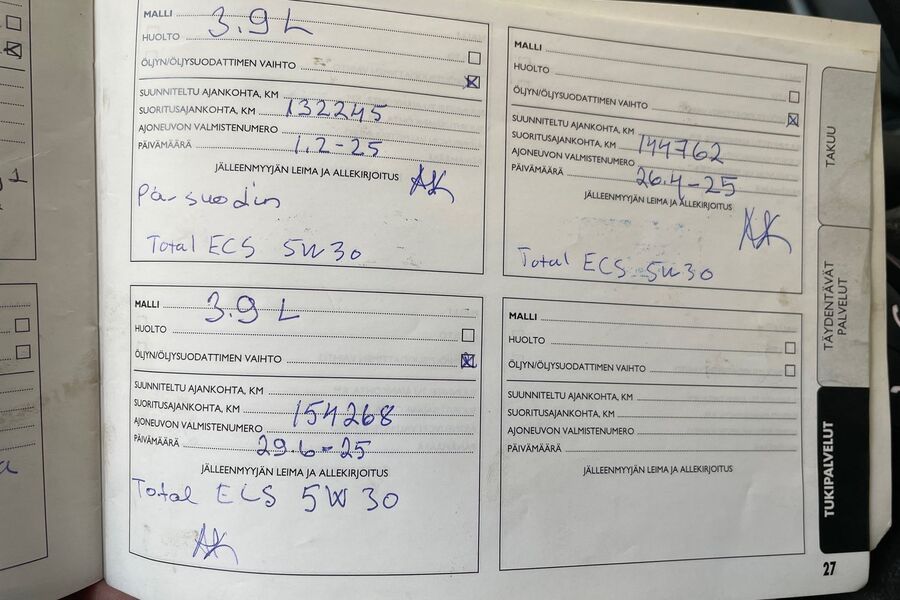 MALLI 3.9 L
HUOLTO
ÖLJYN/ÖLJYSUODATTIMEN VAIHTO
SUUNNITELTU AJANKOHTA, KM
SUORITUSAJANKOHTA, KM 132245
AJONEUVON VALMISTENUMERO
PÄIVÄMÄÄRÄ 1.2-25
JÄLLEENMYYJÄN LEIMA JA ALLEKIRJOITUS
AK
Total ECS 5W30
MALLI
HUOLTO
ÖLJYN/ÖLJYSUODATTIMEN VAIHTO
SUUNNITELTU AJANKOHTA, KM
SUORITUSAJANKOHTA, KM 144762
AJONEUVON VALMISTENUMERO
PÄIVÄMÄÄRÄ 26.4-25
JÄLLEENMYYJÄN LEIMA JA ALLEKIRJOITUS
AK
Total ECS 5W30
MALLI 3.9 L
HUOLTO
ÖLJYN/ÖLJYSUODATTIMEN VAIHTO
SUUNNITELTU AJANKOHTA, KM
SUORITUSAJANKOHTA, KM 154268
AJONEUVON VALMISTENUMERO
PÄIVÄMÄÄRÄ 29.6-25
JÄLLEENMYYJÄN LEIMA JA ALLEKIRJOITUS
Total ECS 5W30
AK
MALLI
HUOLTO
ÖLJYN/ÖLJYSUODATTIMEN VAIHTO
SUUNNITELTU AJANKOHTA, KM
SUORITUSAJANKOHTA, KM
AJONEUVON VALMISTENUMERO
PÄIVÄMÄÄRÄ
JÄLLEENMYYJÄN LEIMA JA ALLEKIRJOITUS
TAKUU
TÄYDENTÄVÄT
PALVELUT
TUKIPALVELUT
27